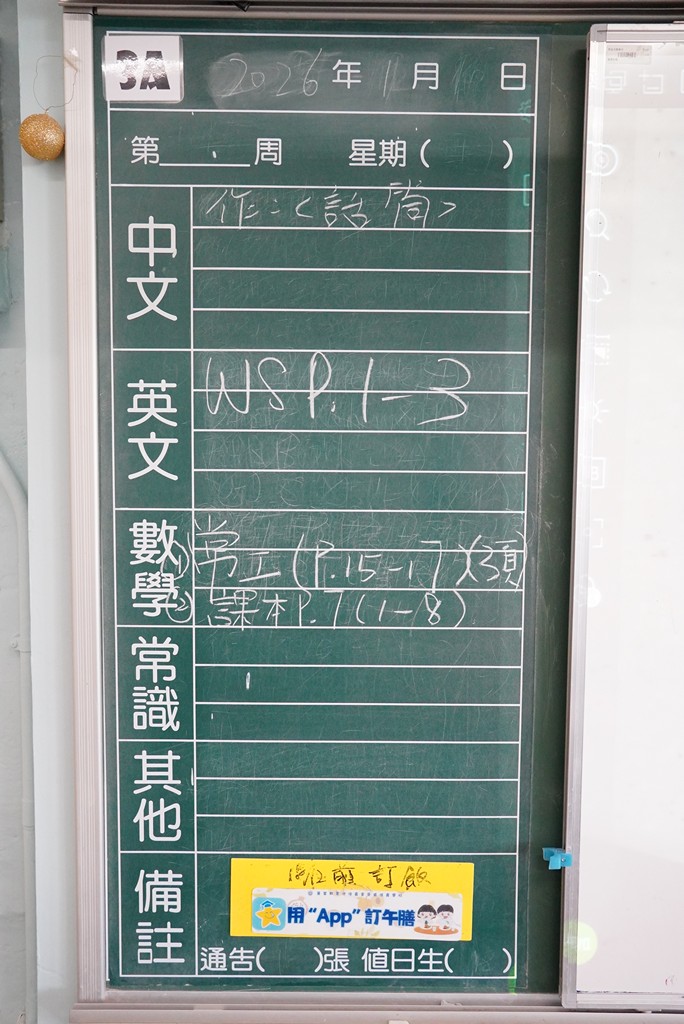 3A 2026年1月 日
第 周 星期( )
中文
作:<話筒>
英文
WS P.1-3
數學
(1) 常工(P.15-17)
(2) 課本P.7(1-8)
常識
其他
備註
訂飯
用“App”訂午膳
通告( )張 值日生( )